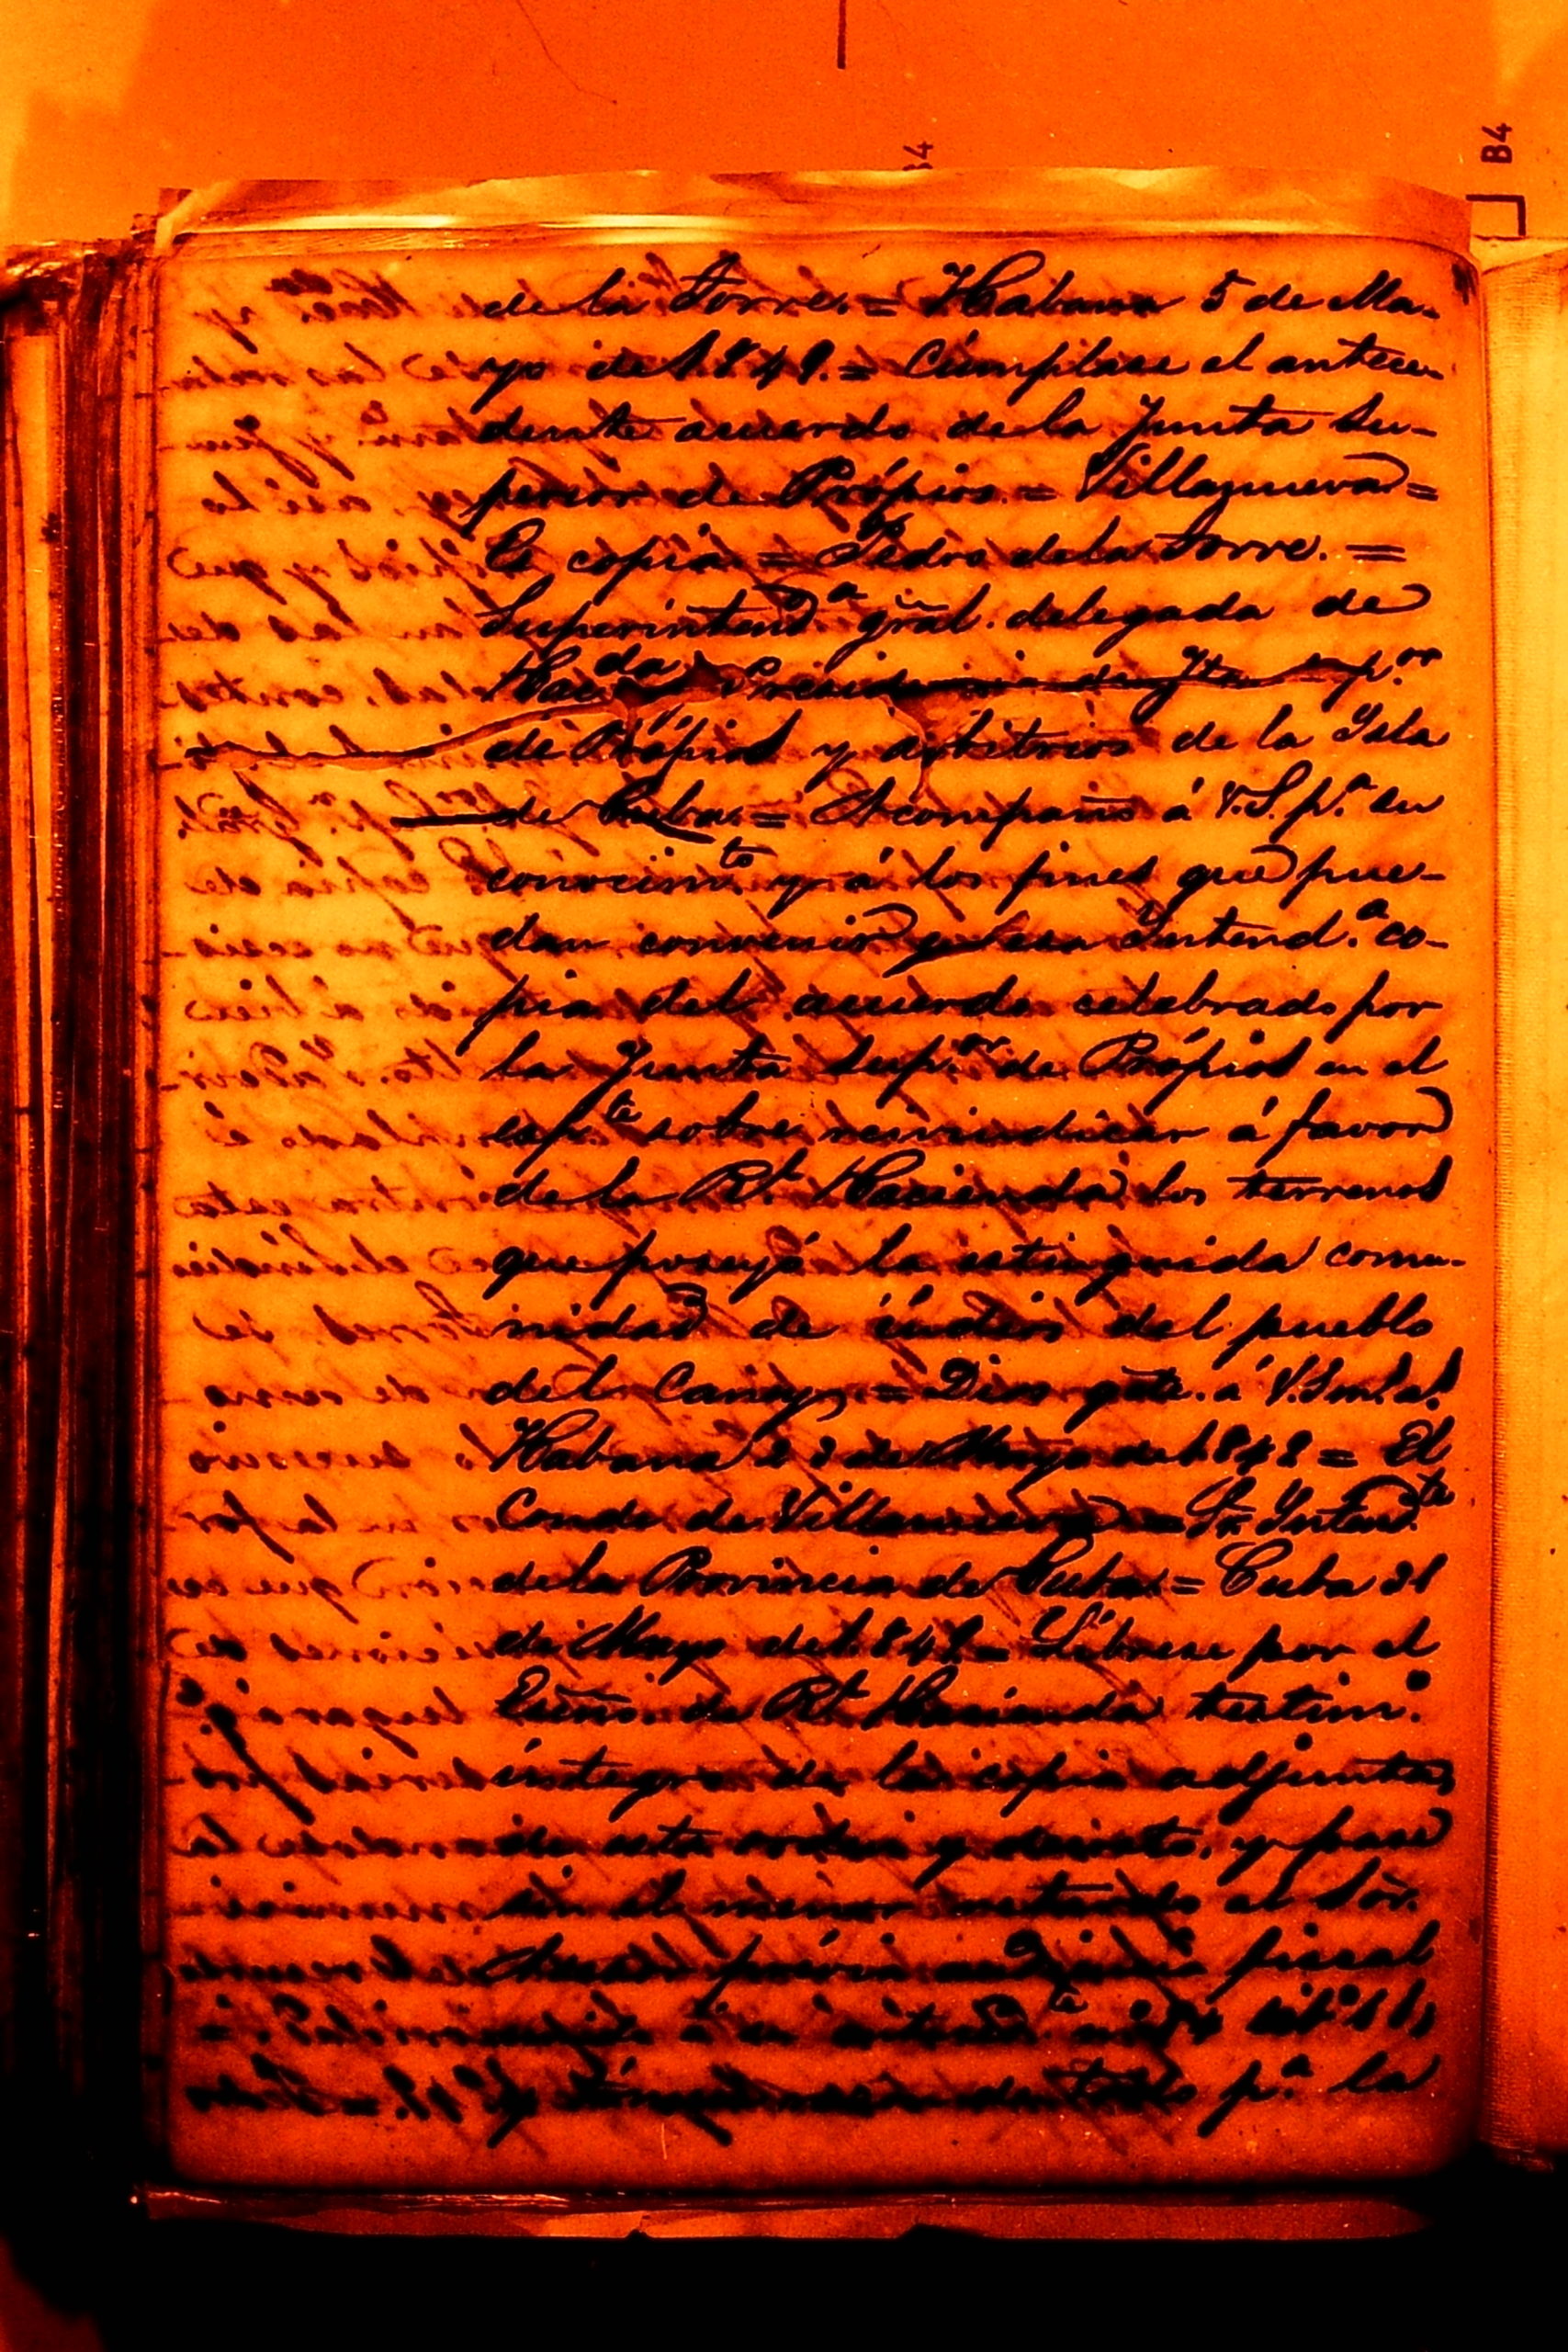 B4
de la Torre. = Habana 5 de Ma-
yo de 1849. = Cúmplase el antece-
dente acuerdo de la Junta Su-
perior de Própios. = Villanueva =
Es copia = Pedro de la Torre. =
Superintend.a gral. delegada de
Hacda Presidencia de Jta Sup.or
de Própios y arbitrios de la Ysla
de Cuba. = Acompaño á V.S. p.a su
conocimto y á los fines que pue-
dan convenir á esa Yntend.a co-
pia del acuerdo celebrado por
la Junta Sup.or de Própios en el
esp.te sobre reivindicar á favor
de la Rl. Hacienda los terrenos
que poseyó la estinguida comu-
nidad de índios del pueblo
del Caney. = Dios gúe. á V.S. m.s a.s
Habana 22 de Mayo de 1849 = El
Conde de Villanueva = Sr. Yntend.te
de la Provincia de Cuba. = Cuba 31
de Mayo de 1849 = Líbrese por el
Esñō. de Rl. Hacienda testim.o
íntegro de la copia adjunta,
de esta orden y decreto, y pase
sin el menor retardo al Sōr.
prévia fiscal
p.a la